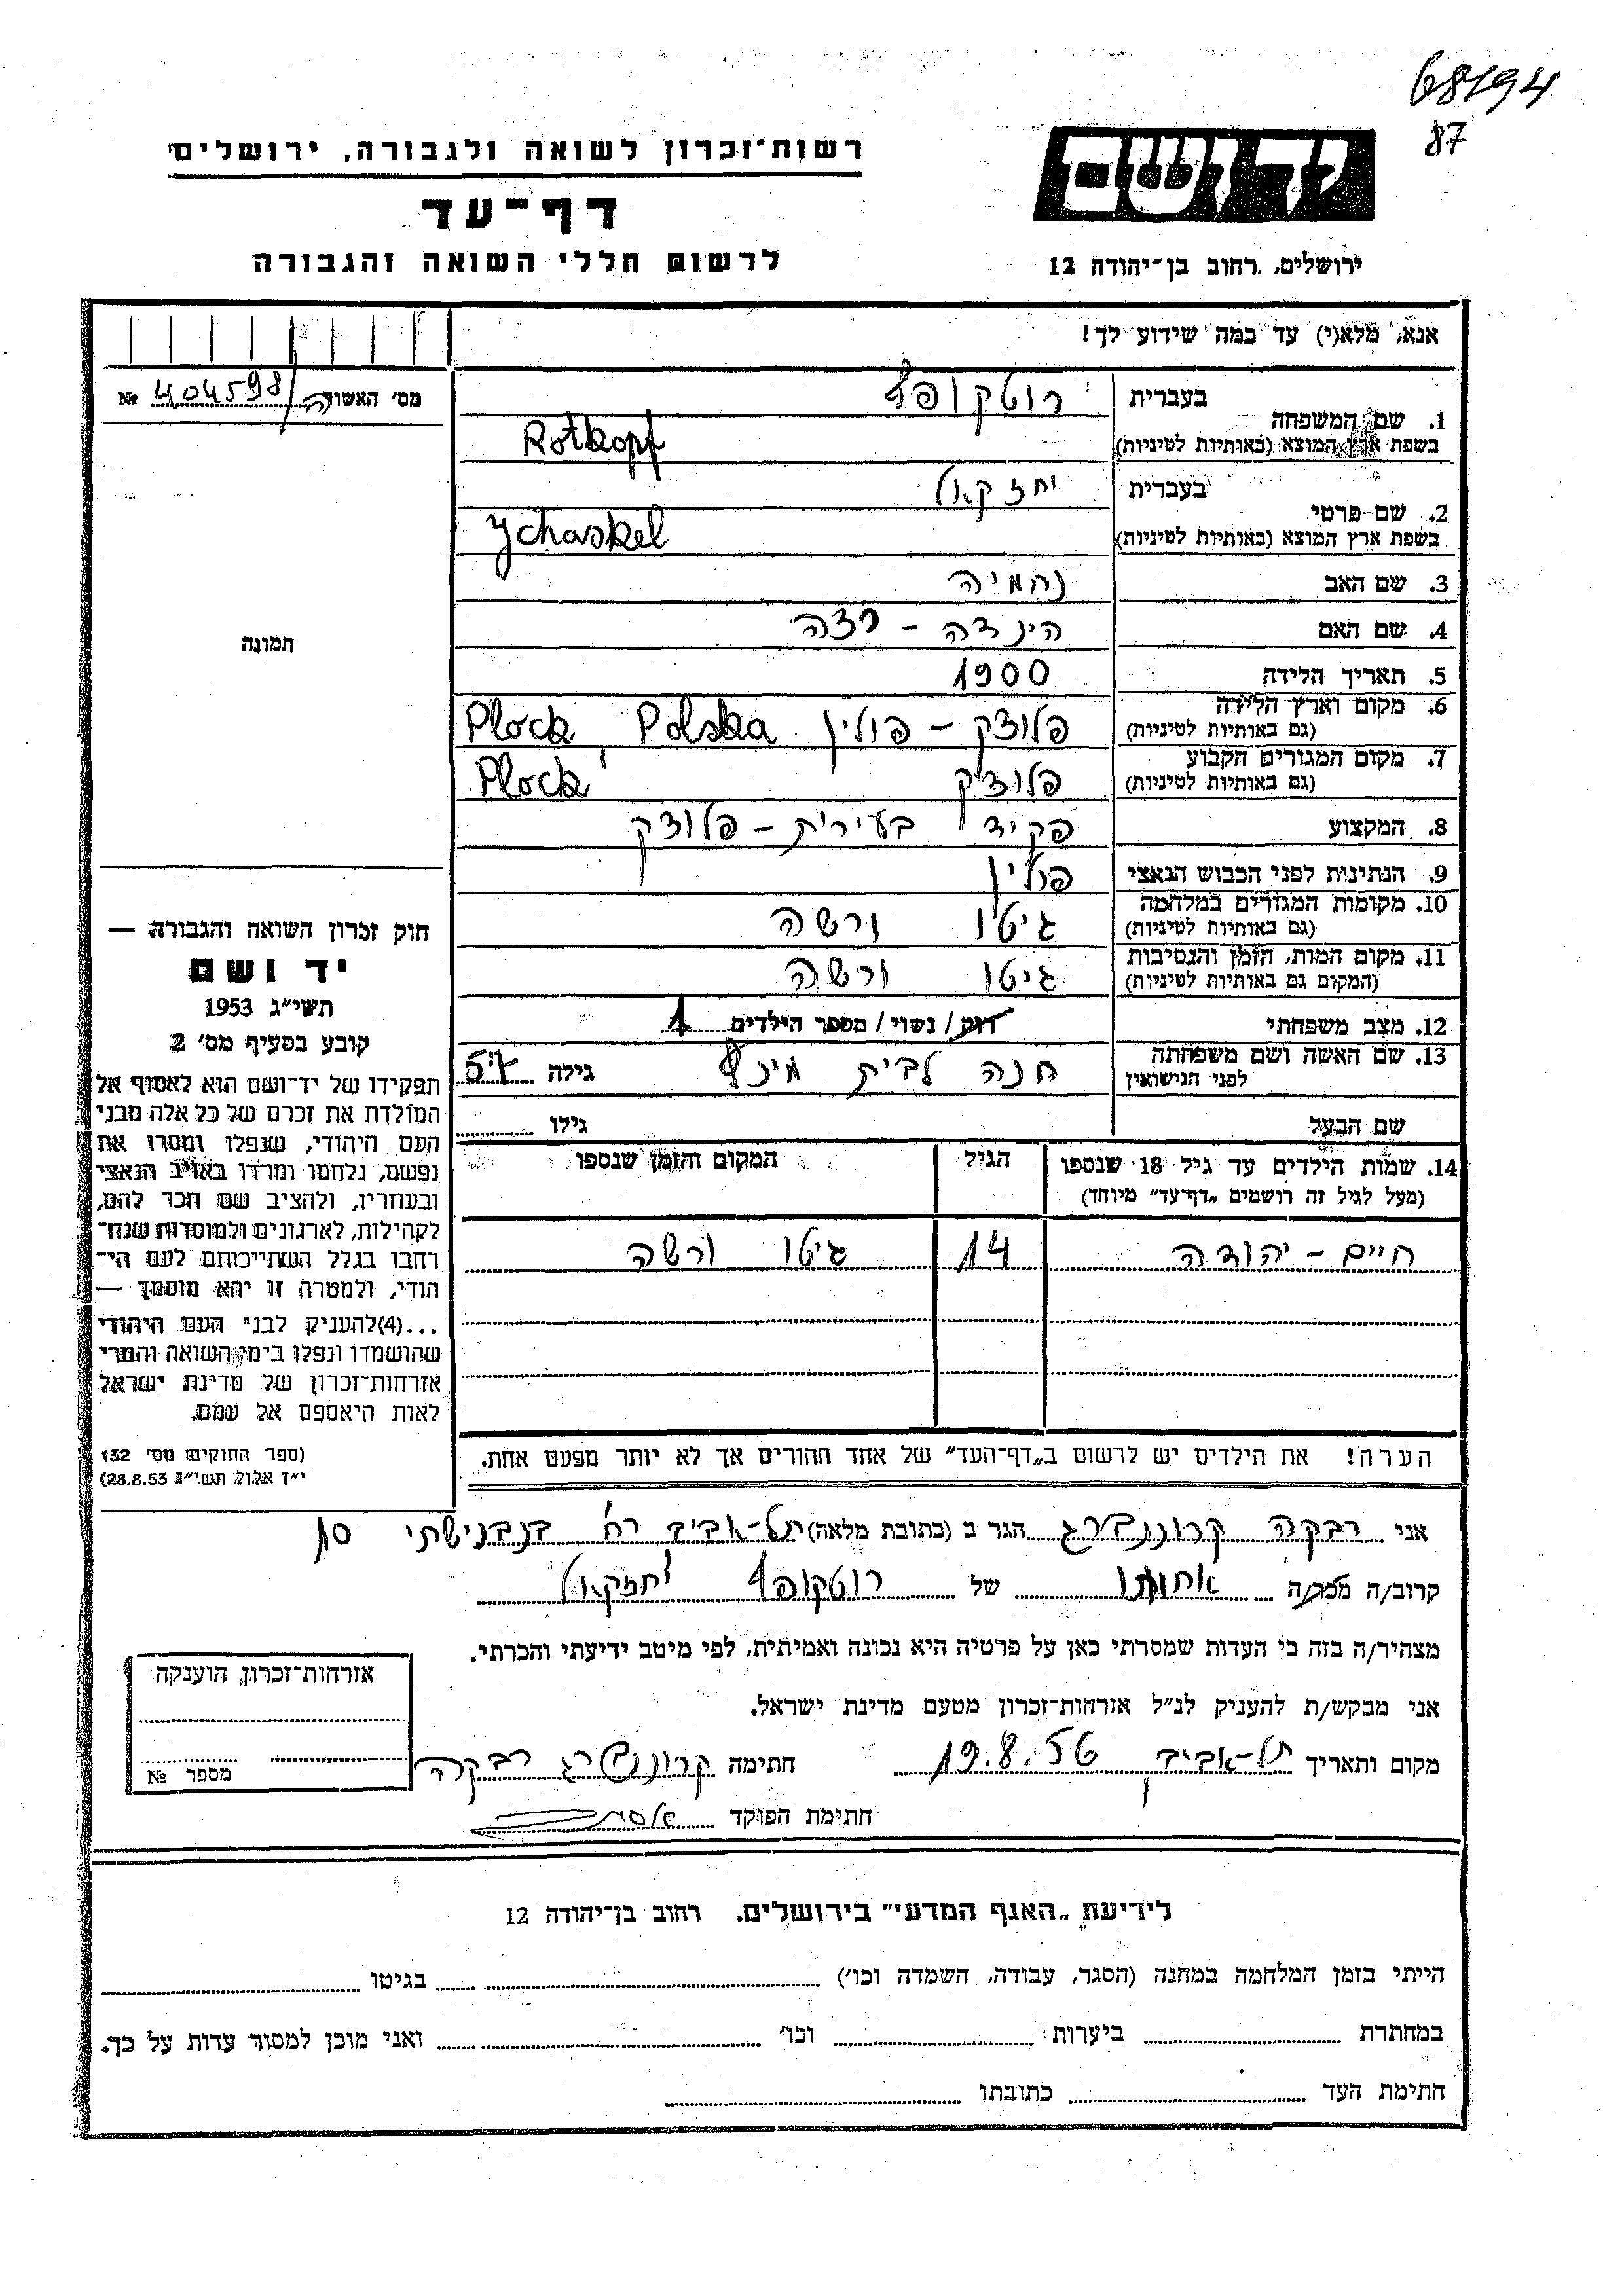 68194
87
יד ושם
ירושלים, רחוב בן־יהודה 12
רשות־זכרון לשואה ולגבורה, ירושלים
דף־עד
לרשום חללי השואה והגבורה
אנא, מלא(י) עד כמה שידוע לך!
מס׳ האשור 404598 №
1. שם המשפחה בעברית רוטקופף
בשפת ארץ המוצא (באותיות לטיניות) Rotkopf
2. שם פרטי בעברית יחזקאל
בשפת ארץ המוצא (באותיות לטיניות) Ychaskel
3. שם האב נחמיה
4. שם האם הינדה -
5. תאריך הלידה 1900
6. מקום וארץ הלידה (גם באותיות לטיניות) פלוצק - פולין Plock Polska
7. מקום המגורים הקבוע (גם באותיות לטיניות) פלוצק Plock
8. המקצוע פקיד בעירית - פלוצק
9. הנתינות לפני הכבוש הנאצי פולין
10. מקומות המגורים במלחמה (גם באותיות לטיניות) גיטו ורשה
11. מקום המות, הזמן והנסיבות (המקום גם באותיות לטיניות) גיטו ורשה
12. מצב משפחתי רוק / נשוי / מספר הילדים 1
13. שם האשה ושם משפחתה לפני הנישואין חנה לבית מינץ גילה
שם הבעל גילו
14. שמות הילדים עד גיל 18 שנספו הגיל המקום והזמן שנספו
(מעל לגיל זה רושמים „דף־עד״ מיוחד)
חיים - יהודה 14 גיטו ורשה
הערה! את הילדים יש לרשום ב„דף־העד״ של אחד ההורים אך לא יותר מפעם אחת.
תמונה
חוק זכרון השואה והגבורה —
יד ושם
תשי״ג 1953
קובע בסעיף מס׳ 2
תפקידו של יד־ושם הוא לאסוף אל
המולדת את זכרם של כל אלה מבני
העם היהודי, שנפלו ומסרו את
נפשם, נלחמו ומרדו באויב הנאצי
ובעוזריו, ולהציב שם וזכר להם,
לקהילות, לארגונים ולמוסדות שנח־
רבו בגלל השתייכותם לעם הי־
הודי, ולמטרה זו יהא מוסמך —
...(4)להעניק לבני העם היהודי
שהושמדו ונפלו בימי השואה והמרי
אזרחות־זכרון של מדינת ישראל
לאות היאספם אל עמם.
(ספר החוקים מס׳ 132
י״ז אלול תשי״ג 28.8.53)
אני רבקה קרוננברג הגר ב (כתובת מלאה) תל-אביב רח׳ בנבנישתי 10
קרוב/ה מכר/ה אחותו של רוטקופף יחזקאל
מצהיר/ה בזה כי העדות שמסרתי כאן על פרטיה היא נכונה ואמיתית, לפי מיטב ידיעתי והכרתי.
אני מבקש/ת להעניק לנ״ל אזרחות־זכרון מטעם מדינת ישראל.
מקום ותאריך תל-אביב 19.8.56 חתימה קרוננברג רבקה
חתימת הפוקד
אזרחות־זכרון, הוענקה
מספר №
לידיעת „האגף המדעי״ בירושלים. רחוב בן־יהודה 12
הייתי בזמן המלחמה במחנה (הסגר, עבודה, השמדה וכו׳) בגיטו
במחתרת ביערות וכו׳ ואני מוכן למסור עדות על כך.
חתימת העד כתובתו